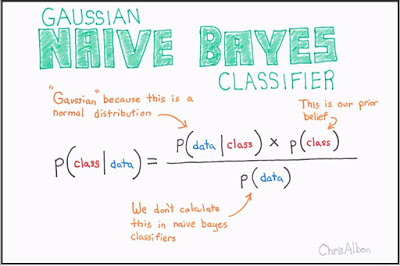 GAUSSIAN
NAIVE BAYES
CLASSIFIER
"Gaussian" because this is a
normal distribution
This is our prior
belief
p(data | class) × p(class)
p(class | data) =
p(data)
We don't calculate
this in naive bayes
classifiers
ChrisAlbon